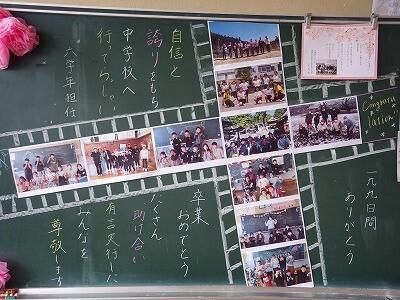 Congratu
lation!
自信と
誇りをもち
中学校へ
行ってらっしゃい
六学年担任
一九九日間
ありがとう
卒業
おめでとう
たくさん
助け合い
有言実行した
みんなを
尊敬します